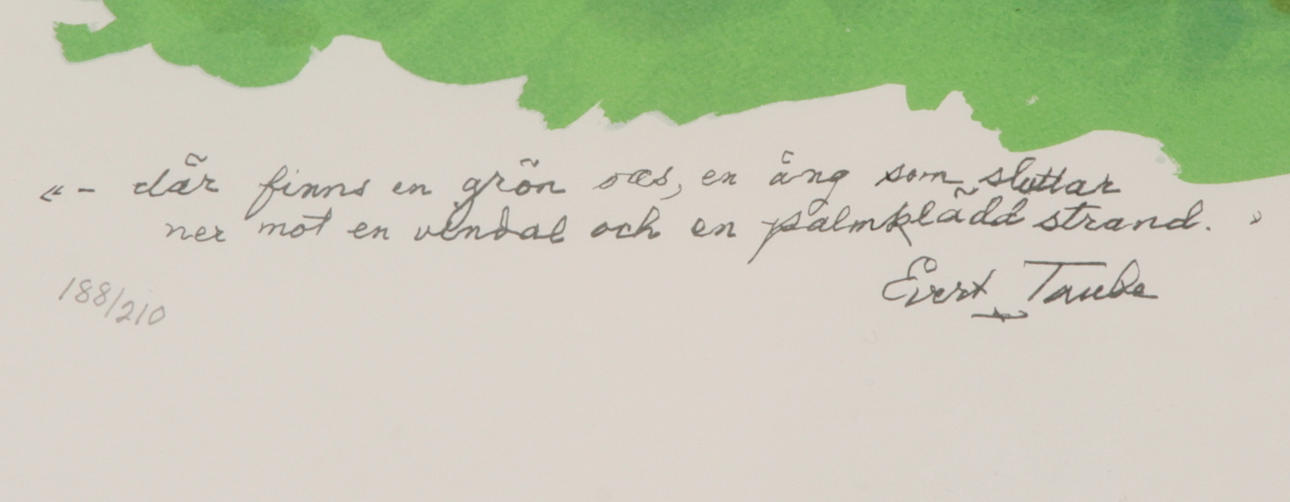 "– där finns en grön oas, en äng som sluttar
ner mot en vindal och en palmklädd strand."
Evert Taube
188/210